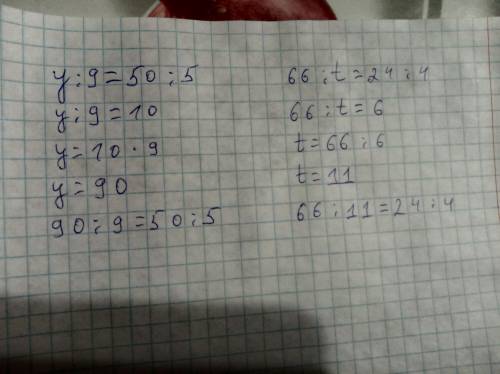 y:9=50:5
y:9=10
y=10·9
y=90
90:9=50:5
66:t=24:4
66:t=6
t=66:6
t=11
66:11=24:4